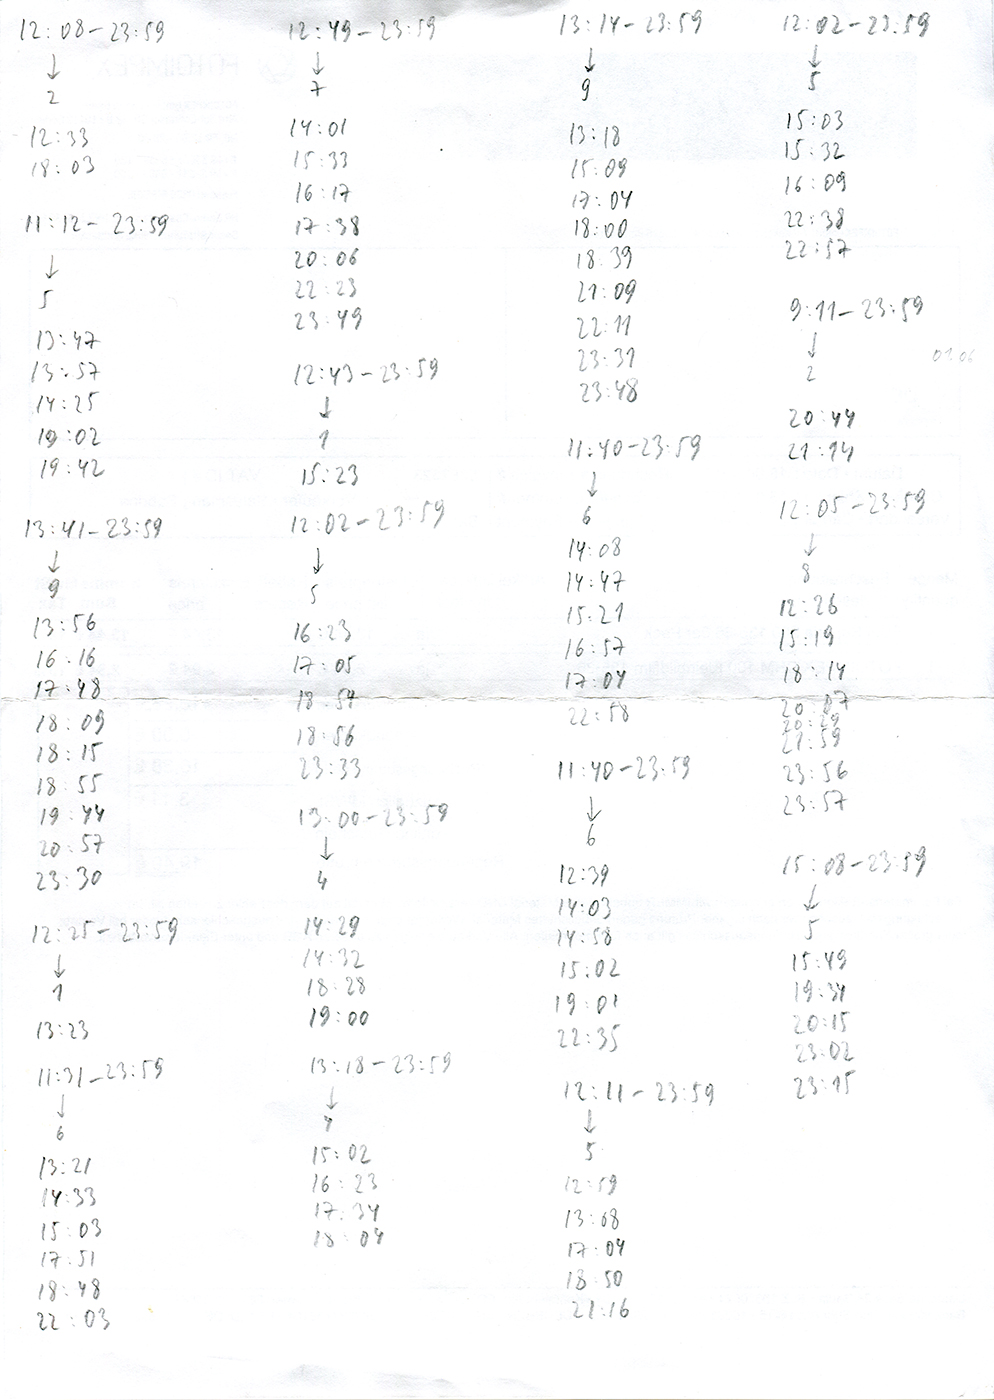 12:08-23:59
↓
2
12:33
18:03
11:12-23:59
↓
5
13:47
13:57
14:25
19:02
19:42
13:41-23:59
↓
9
13:56
16:16
17:48
18:09
18:15
18:55
19:44
20:57
23:30
12:25-23:59
↓
1
13:23
11:31-23:59
↓
6
13:21
14:33
15:03
17:51
18:48
22:03
12:49-23:59
↓
7
14:01
15:33
16:17
17:38
20:06
22:23
23:49
12:43-23:59
↓
1
15:23
12:02-23:59
↓
5
16:23
17:05
18:54
18:56
23:33
13:00-23:59
↓
4
14:29
14:32
18:28
19:00
13:18-23:59
↓
4
15:02
16:23
17:34
18:04
13:14-23:59
↓
9
13:18
15:09
17:04
18:00
18:39
21:09
22:11
23:31
23:48
11:40-23:59
↓
6
14:08
14:47
15:21
16:57
17:04
22:58
11:40-23:59
↓
6
12:39
14:03
14:58
15:02
19:01
22:35
12:11-23:59
↓
5
12:59
13:08
17:04
18:50
21:16
12:02-23:59
↓
5
15:03
15:32
16:09
22:38
22:57
9:11-23:59
↓
2
20:44
21:14
12:05-23:59
↓
8
12:26
15:19
18:14
20:07
20:29
21:59
23:56
23:57
15:08-23:59
↓
5
15:49
19:34
20:15
23:02
23:15